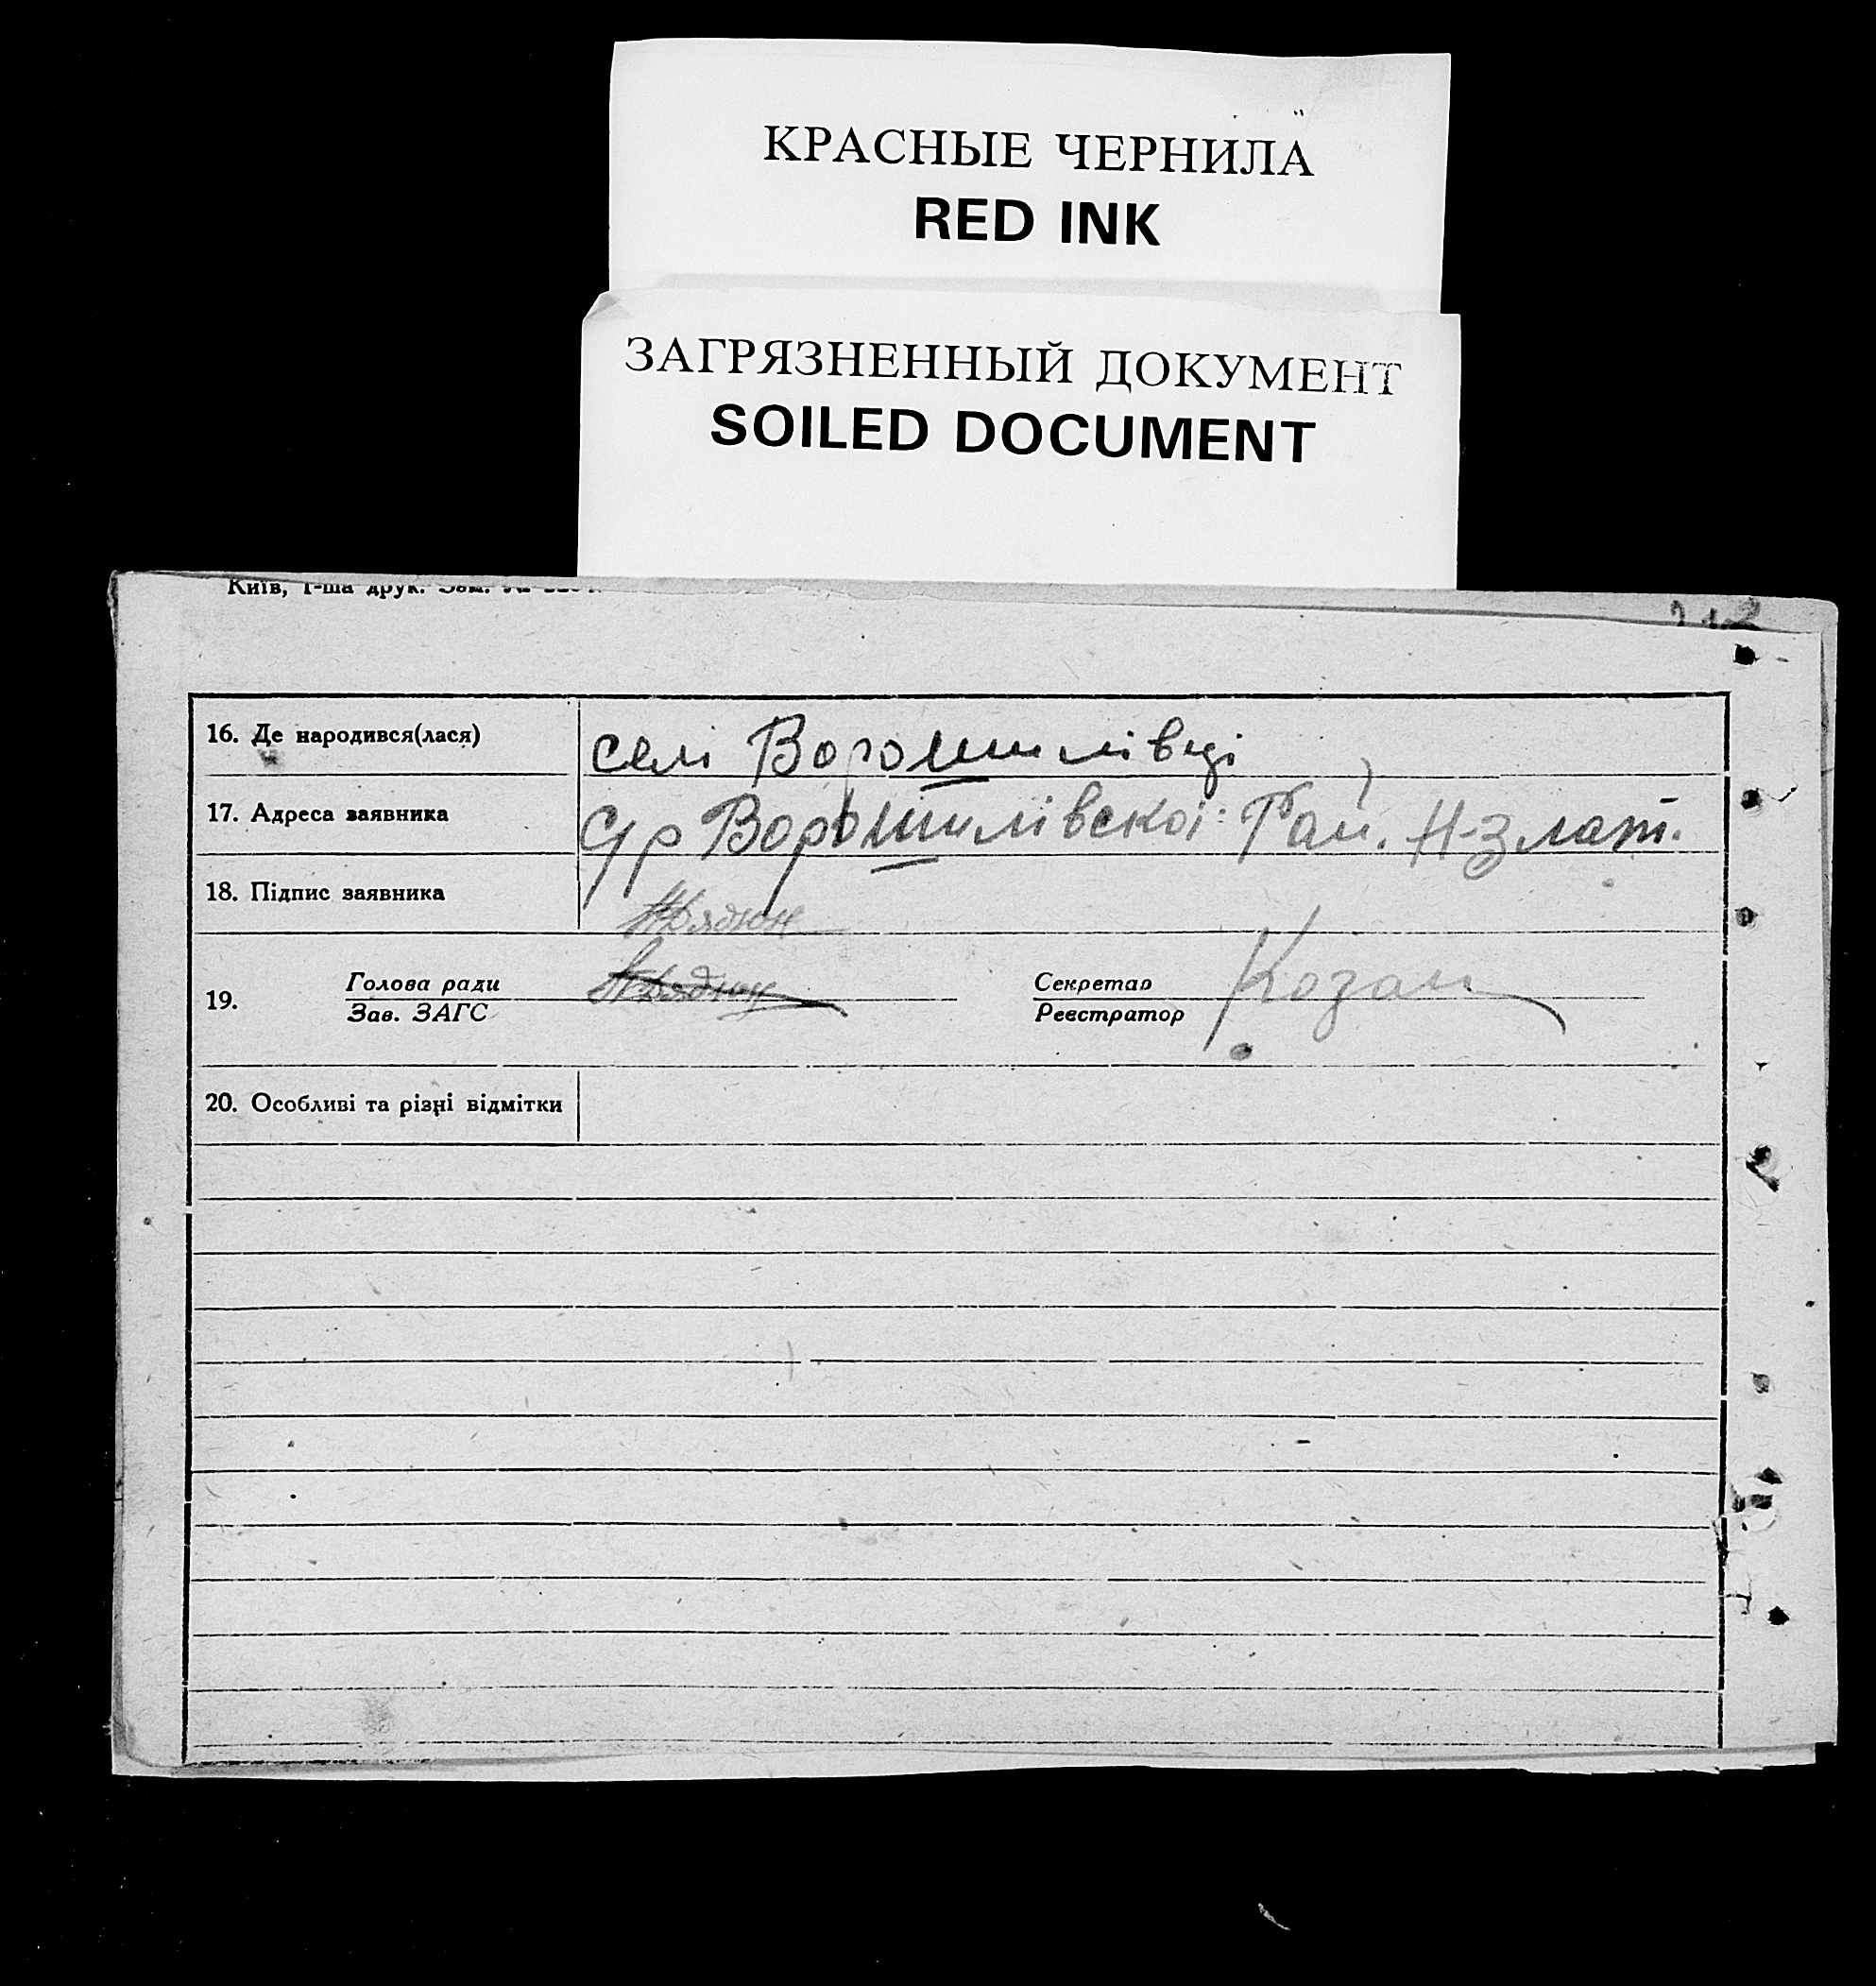 КРАСНЫЕ ЧЕРНИЛА
RED INK
ЗАГРЯЗНЕННЫЙ ДОКУМЕНТ
SOILED DOCUMENT
Київ, 1-ша друк. Зам. №
16. Де народився(лася) селі Ворошилівці
17. Адреса заявника С/р Ворошилівскої Рай. Н-Злат.
18. Підпис заявника
19. Голова ради Секретар Козак
Зав. ЗАГС Реєстратор
20. Особливі та різні відмітки